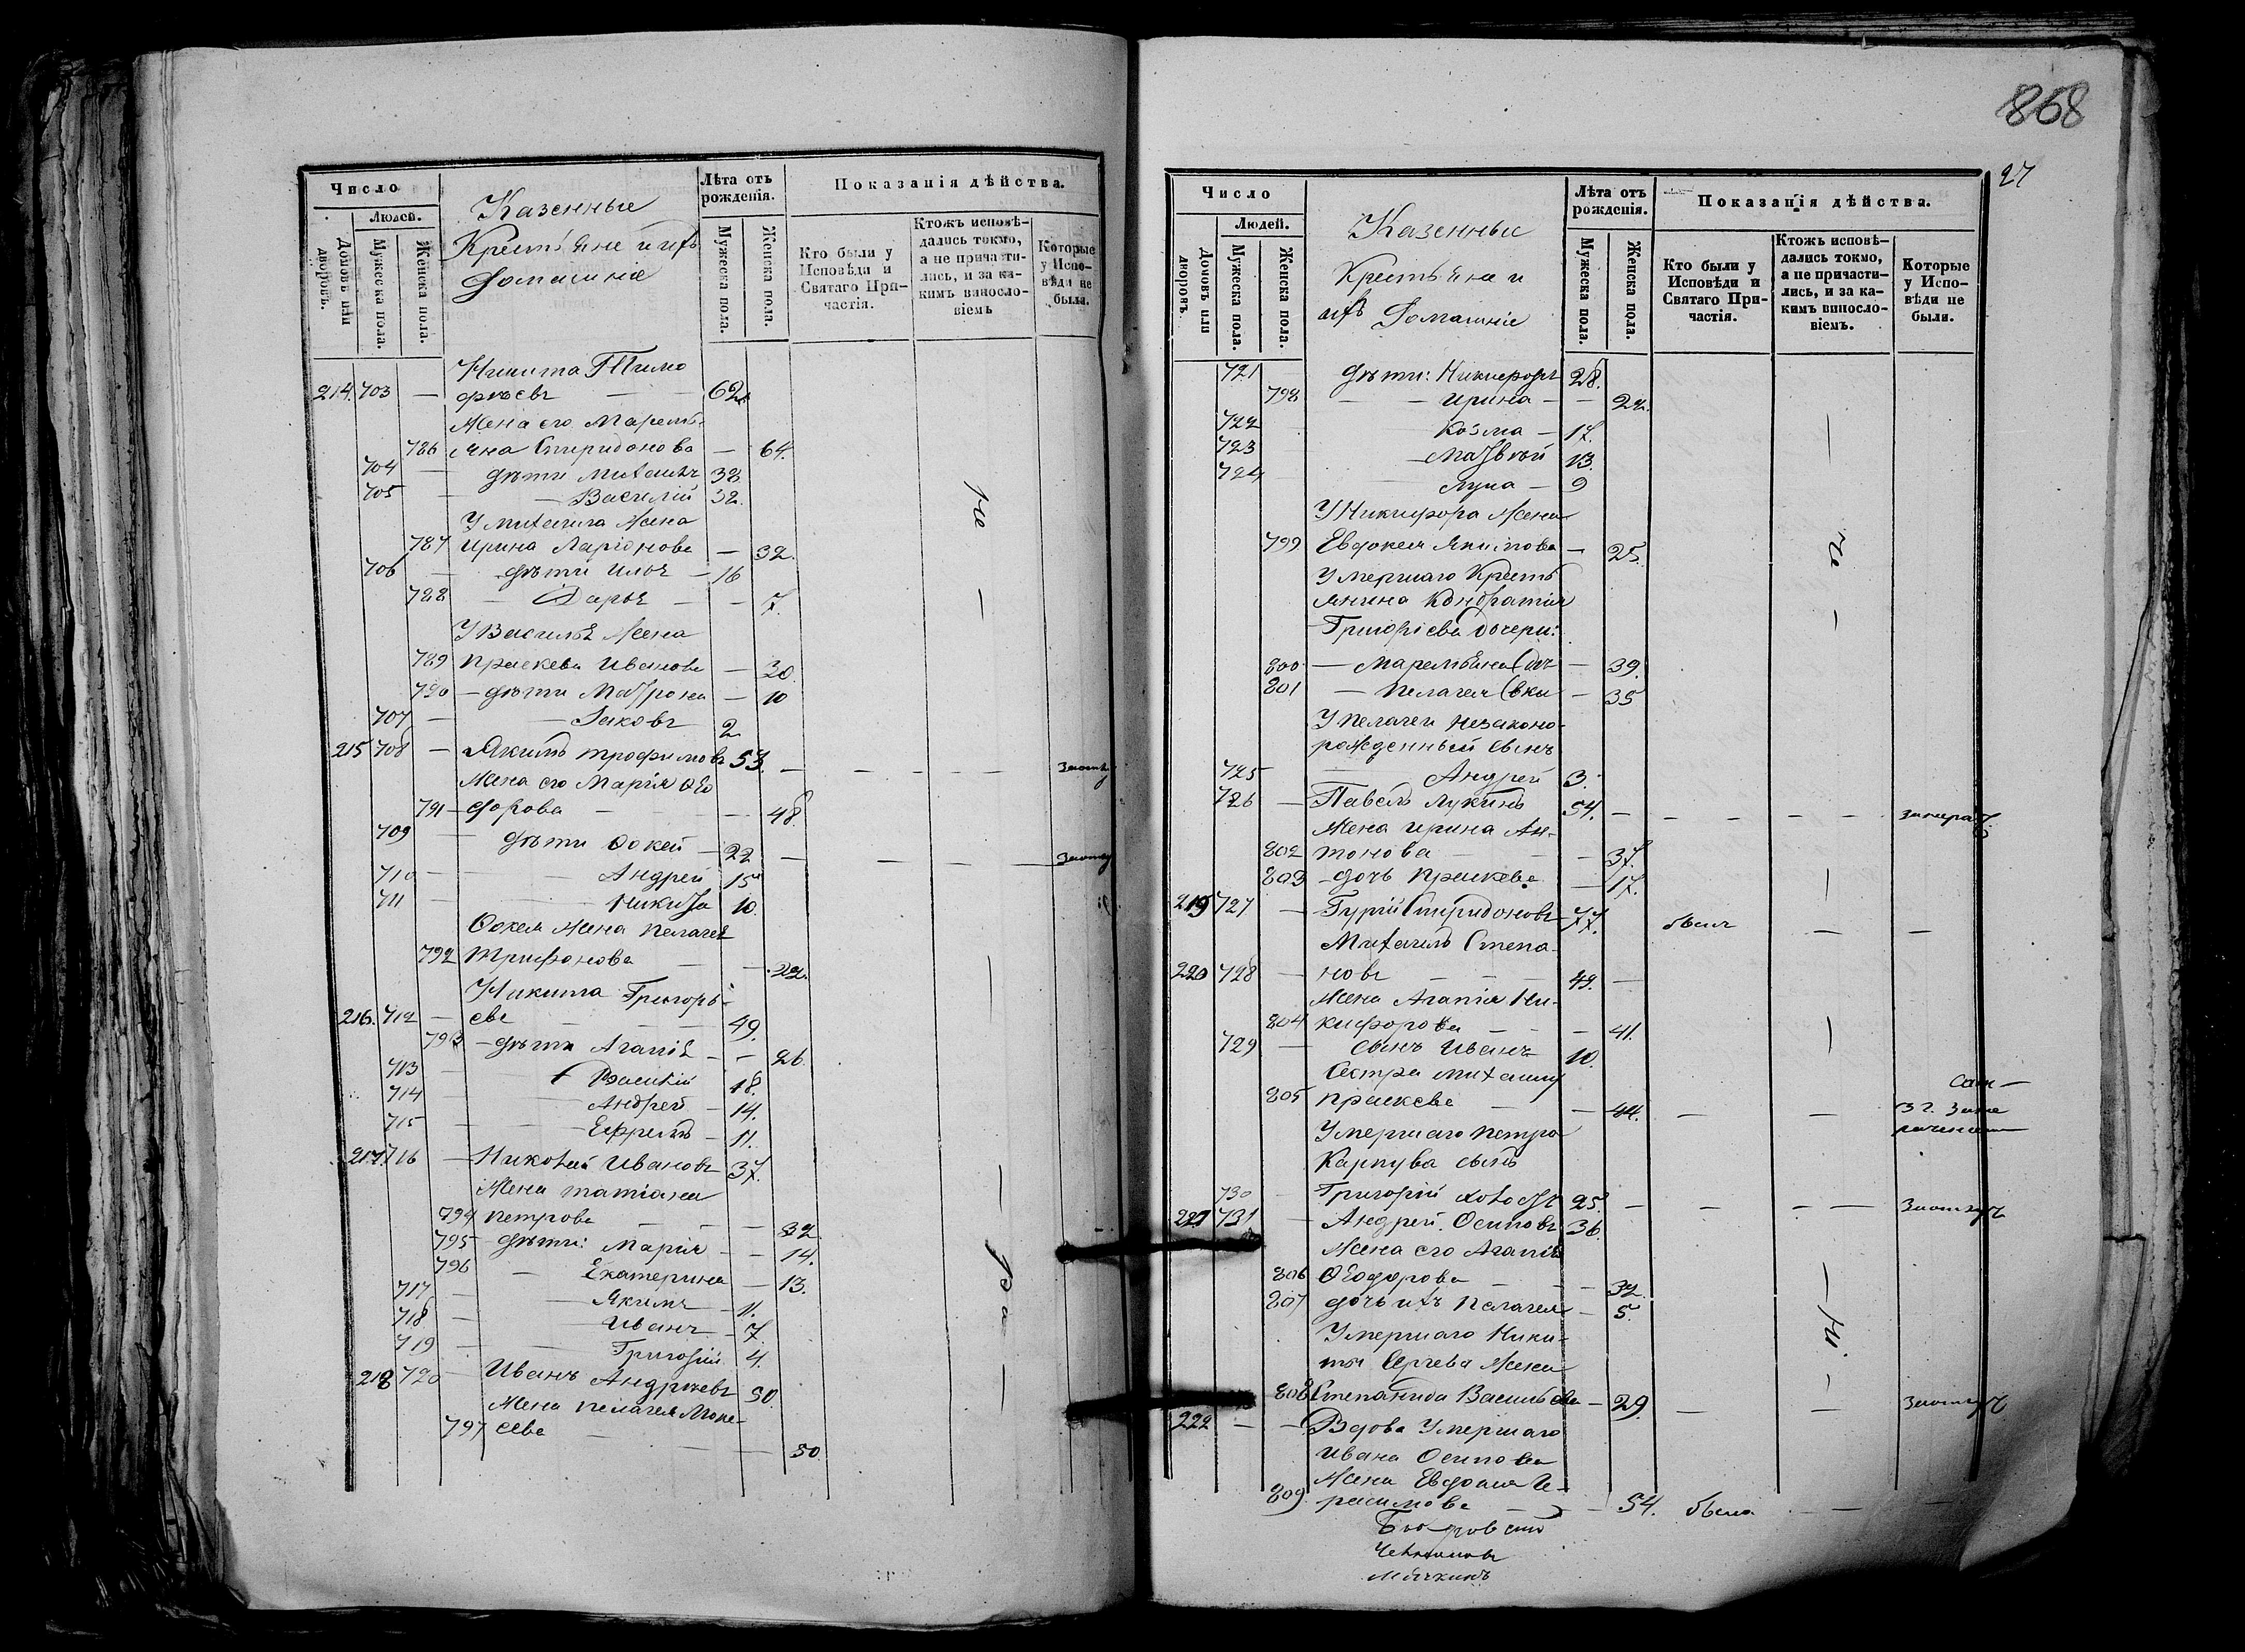 868
27
Число
Людей.
Домовъ или дворовъ.
Мужеска пола.
Женска пола.
Казенные
Крестьяне и ихъ
домашніе
Лѣта отъ рожденія.
Мужеска пола.
Женска пола.
Показанія дѣйства.
Кто были у Исповѣди и Святаго Причастія.
Ктожъ исповѣдались токмо, а не причастились, и за какимъ винословіемъ
Которые у Исповѣди не были.
Никита Тимо
214. 703 — фѣевъ — 62.
Жена его Маремь-
786 яна Спиридонова — 64.
704 — дѣти Михаилъ 38
705 — Василій 32.
У Михаила жена
787 Ирина Ларіонова — 32.
706 — дѣти Илья — 16
788 — Дарья — — 7.
У Василья жена
789 Праскева Иванова — 30.
790 — дѣти Матрона — 10
707 — — Іаковъ 2
215 708 — Якимъ Трофимовъ 53. — — — —
Жена его Марія Ѳео
791 — дорова — — 48.
709 — дѣти Ѳокей — 22 — — — —
710 — — Андрей 15
711 — — Никита 10.
Ѳокея жена Пелагея
792 Трифонова — — 22.
Никита Григорь-
216. 712 — евъ — — — 49.
793 — дѣти Агапія — — 26
713 — Василій 18.
714 — Андрей — 14.
715 — — Ефремъ — 11.
217 716 — Николай Ивановъ 37.
Жена Татіана
794 Петрова — — — 32
795 — дѣти: Марія — — 14.
796 — Екатерина — 13.
717 — — Якимъ — 11.
718 — — Иванъ — 7.
719 — — Григорій 4.
218 720 — Иванъ Андреевъ 50.
Жена Пелагея Моке-
797 сева — — — 50.
не
—
Число
Людей.
Домовъ или дворовъ.
Мужеска пола.
Женска пола.
Казенныи
Крестьяна и
ихъ Домашніе
Лѣта отъ рожденія.
Мужеска пола.
Женска пола.
Показанія дѣйства.
Кто были у Исповѣди и Святаго Причастія.
Ктожъ исповѣдались токмо, а не причастились, и за какимъ винословіемъ.
Которые у Исповѣди не были.
721 — дѣти: Никифоръ 28.
798 — — Ирина — — 22.
722 — Козма — 17.
723 — Матвѣй 13.
724 — Лука — 9
У Никифора жена
799 Евдокея Якимова — 25.
Умершаго Кресть
янина Кондратія
Григорієва дочери:
800 — Маремьяна — 39.
801 — Пелагея — 35
У Пелагеи незаконо-
рожденный сынъ
725 — Андрей 3.
726 — Павелъ Лукинъ 54. — — — — —
Жена Ирина Ан-
802 тонова — — 37.
803 — дочь Праскева — 17.
219 727 — Гурій Спиридоновъ 77. былъ — —
Михаилъ Степа-
220 728 — новъ — — — 49. —
Жена Агапія Ни-
804 кифорова — — — 41.
729 — сынъ Иванъ 10.
Сестра Михаилу
805 Праскева — — 44. — —
Умершаго Петра
Карпува сынъ
730 — Григорій холостъ 25. — — — —
221 731 — Андрей Осиповъ 36.
Жена его Агапія
806 Ѳеодорова — — — 32.
807 дочь ихъ Пелагея — 5.
Умершаго Ники-
ты Сергева жена
808 Степанида Васильева — 29. — —
222 — — Вдова Умершаго
Ивана Осипова
Жена Евдокия Ге-
809. расимова — — 54. была — —